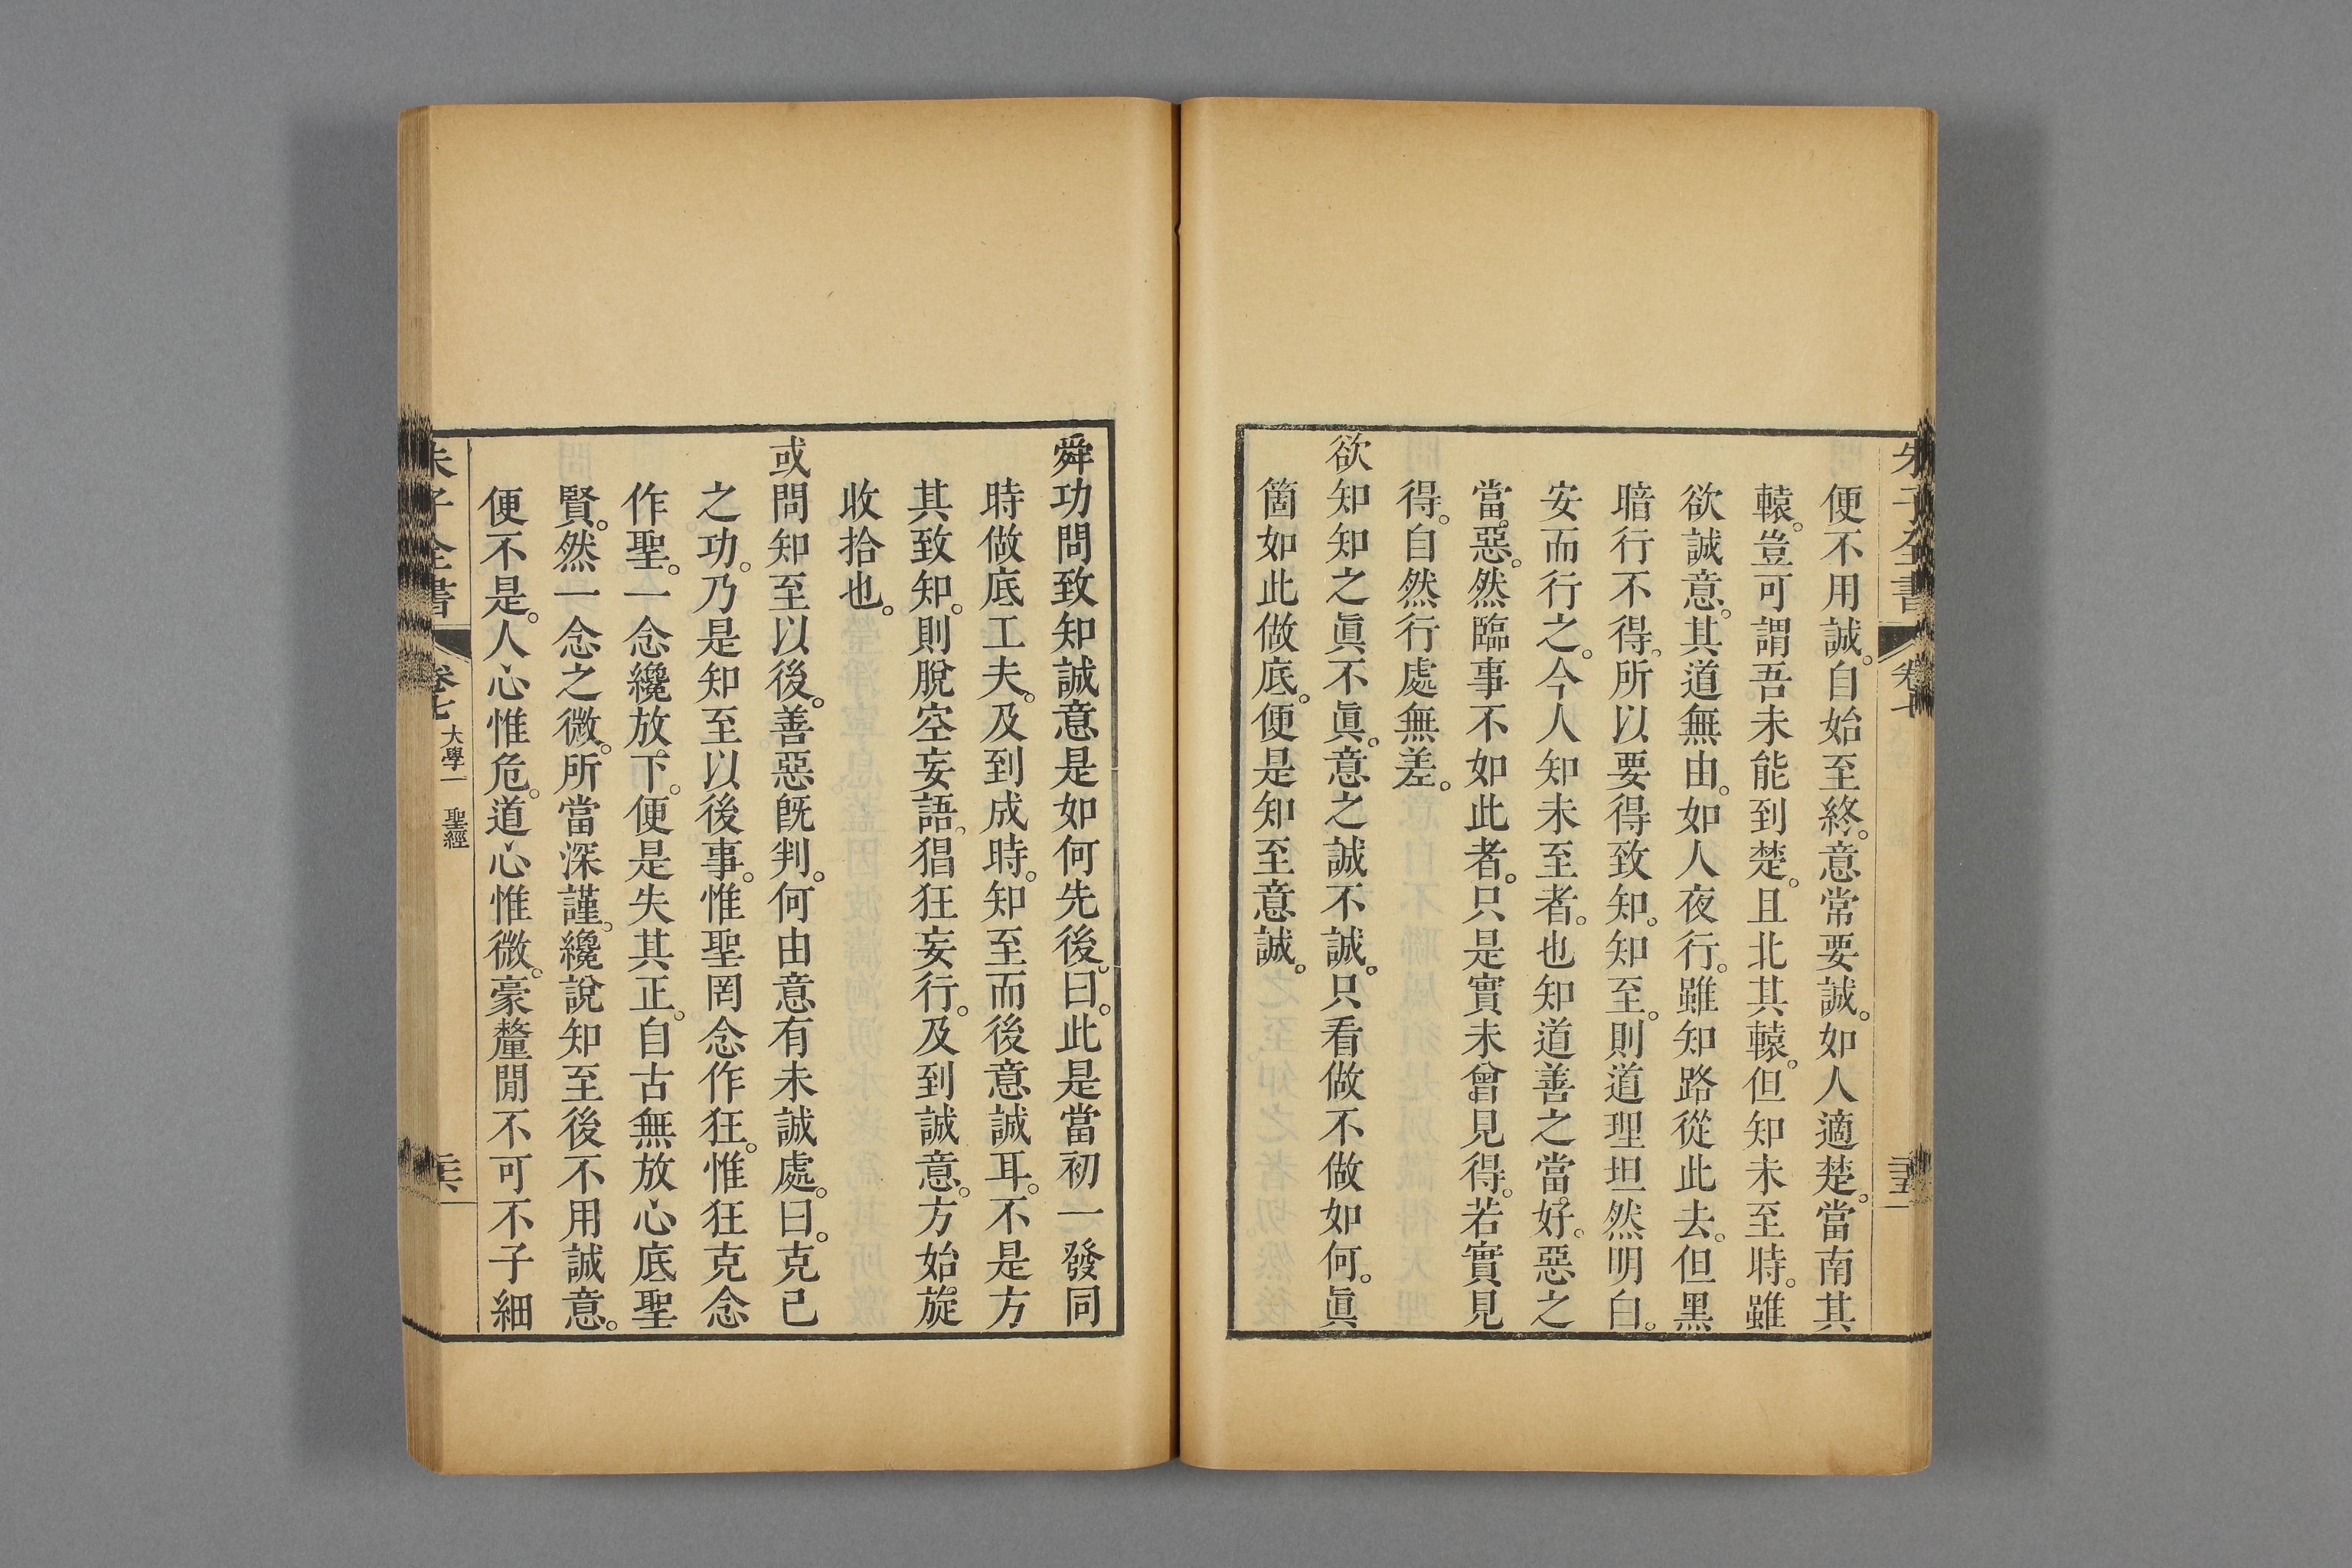 朱子全書 卷七 三五
便不用誠。自始至終。意常要誠。如人適楚。當南其
轅。豈可謂吾未能到楚。且北其轅。但知未至時。雖
欲誠意。其道無由。如人夜行。雖知路從此去。但黑
暗行不得。所以要得致知。知至。則道理坦然明白。
安而行之。今人知未至者。也知道善之當好。惡之
當惡。然臨事不如此者。只是實未曾見得。若實見
得。自然行處無差。
欲知知之眞不眞。意之誠不誠。只看做不做如何。眞
箇如此做底。便是知至意誠。
舜功問致知誠意是如何先後。曰。此是當初一發同
時做底工夫。及到成時。知至而後意誠耳。不是方
其致知。則脫空妄語。猖狂妄行。及到誠意。方始旋
收拾也。
或問知至以後。善惡旣判。何由意有未誠處。曰。克己
之功。乃是知至以後事。惟聖罔念作狂。惟狂克念
作聖。一念纔放下。便是失其正。自古無放心底聖
賢。然一念之微。所當深謹。纔說知至後不用誠意。
便不是。人心惟危。道心惟微。豪釐閒不可不子細
朱子全書 卷七 大學一 聖經